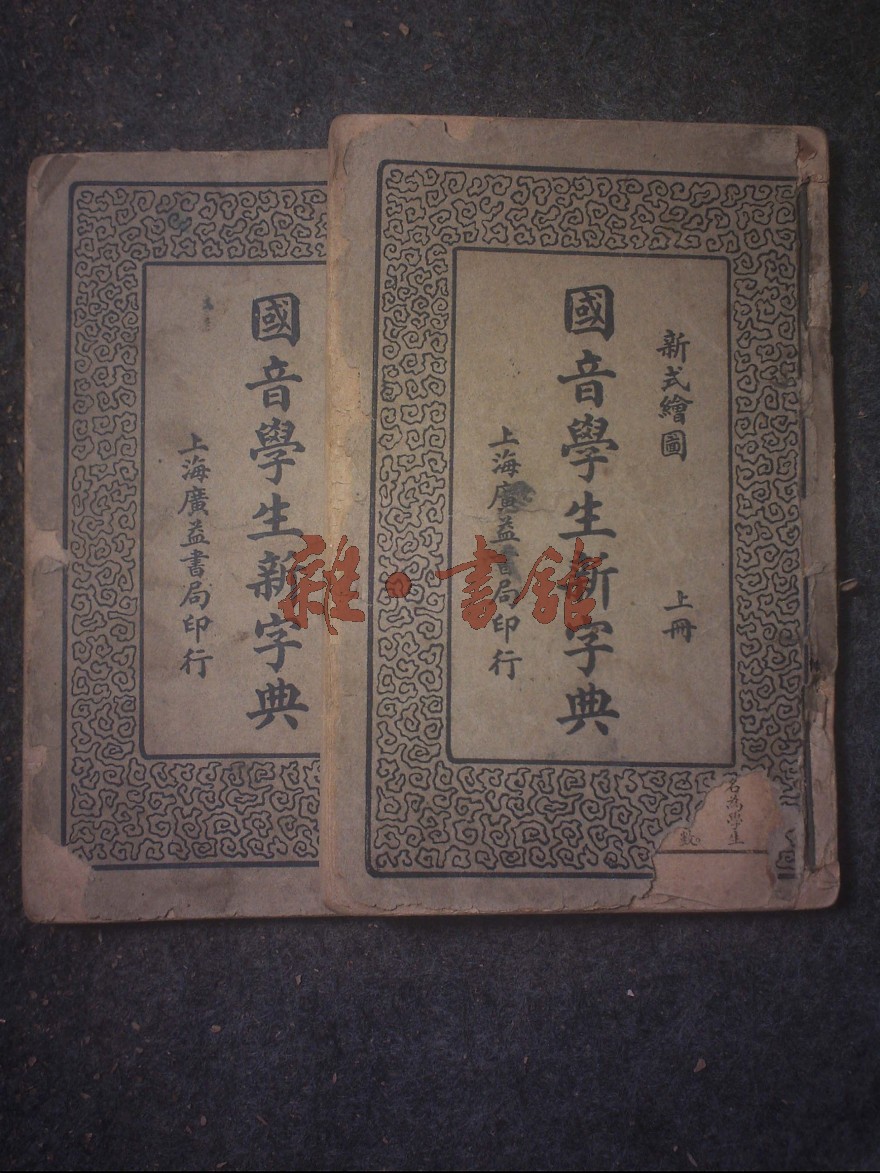 新式繪圖
上冊
國音學生新字典
上海廣益書局印行
名為學生
數
國音學生新字典
上海廣益書局印行
雜·書館